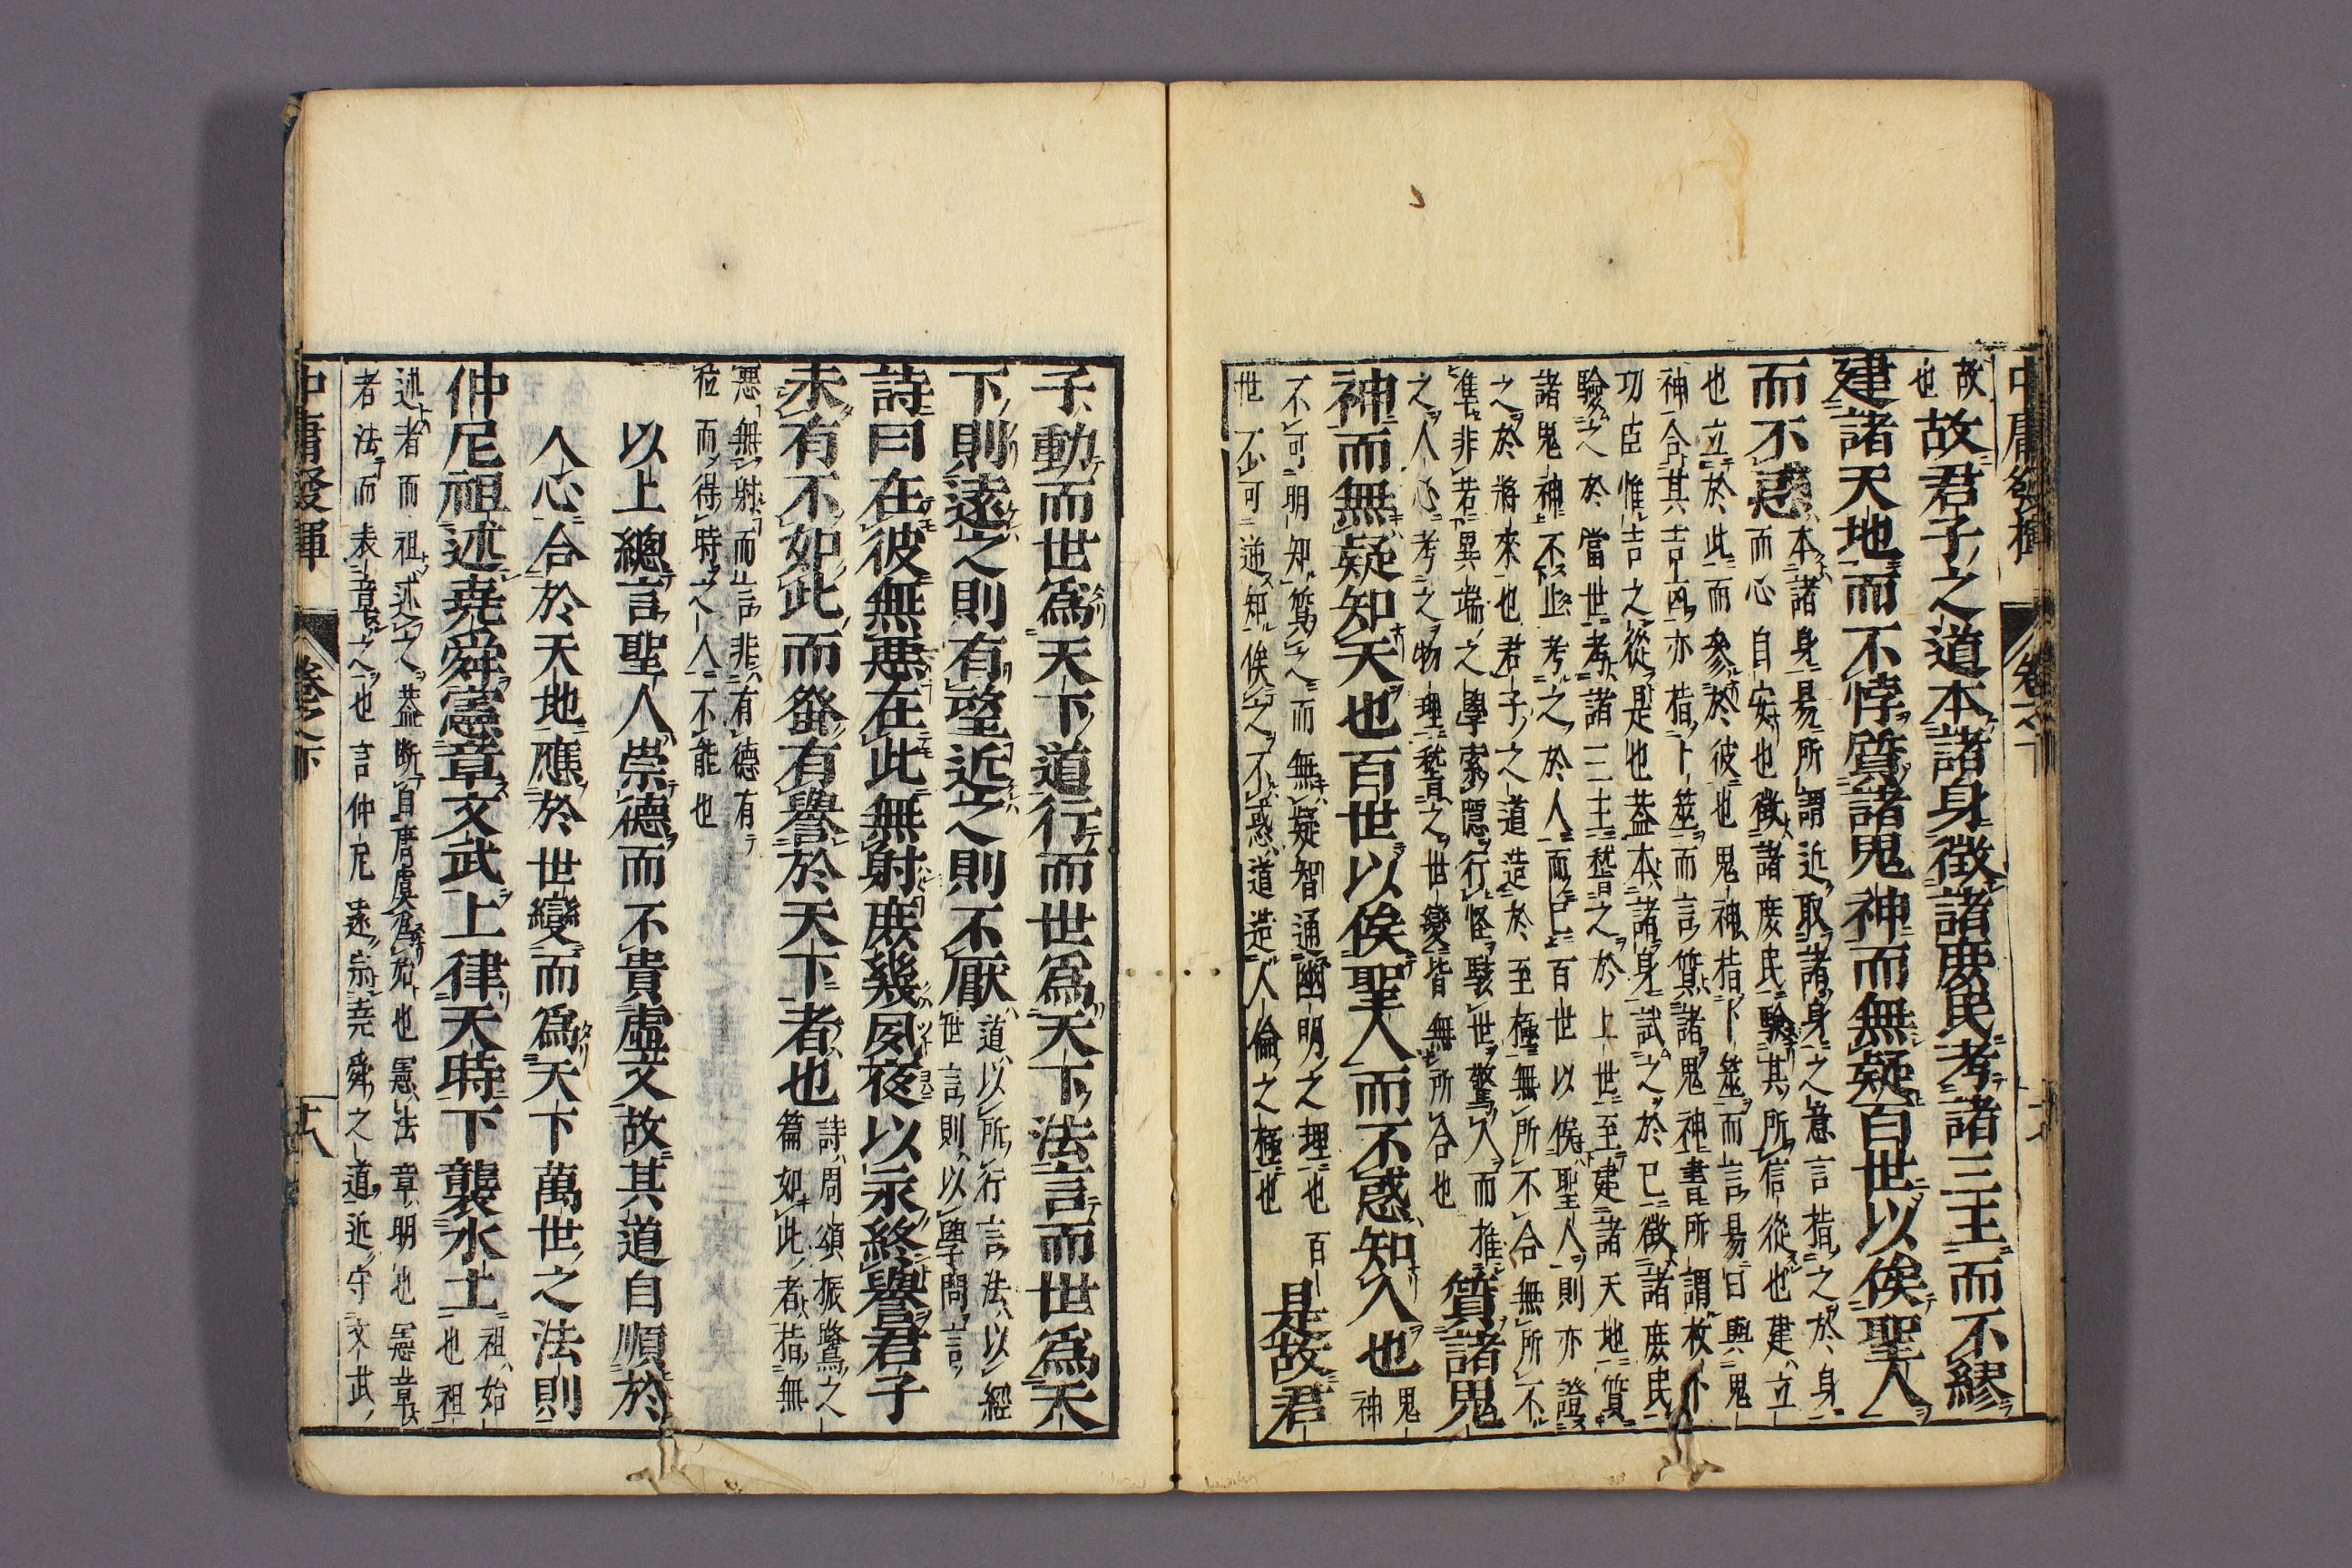 中庸發揮 卷之下
故
也
故君子之道本諸身徵諸庶民考諸三王而不繆
建諸天地而不悖質諸鬼神而無疑百世以俟聖人
而不惑
本諸身易所謂近取諸身之意言指之於身
而心自安也徵諸庶民驗其所信從也建立
也立於此而參於彼也鬼神指卜筮而言易曰與鬼
神合其吉凶亦指卜筮而言質諸鬼神書所謂枚卜
功臣惟吉之從是也蓋本諸身試之於己徵諸庶民
驗之於當世考諸三王稽之於上世至建諸天地質
諸鬼神不止考之於人而已百世以俟聖人則亦證
之於將來也君子之道造於至極無所不合無所不
準非若異端之學索隱行怪駭世驚人而推
之人心考之物理稽之世變皆無所合也
質諸鬼
神而無疑知天也百世以俟聖人而不惑知人也
鬼
神
不可明知質之而無疑智通幽明之理也百
世不可逆知俟之不惑道造人倫之極也
是故君
子動而世爲天下道行而世爲天下法言而世爲天
下則遠之則有望近之則不厭
道以所行言法以經
世言則以學問言
詩曰在彼無惡在此無射庶幾夙夜以永終譽君子
未有不如此而蚤有譽於天下者也
詩周頌振鷺之
篇如此者指無
惡無射而言非有德有
位而得時之人不能也
以上總言聖人崇德而不貴虛文故其道自順於
人心合於天地應於世變而爲天下萬世之法則
仲尼祖述堯舜憲章文武上律天時下襲水土
祖始
也祖
述者而祖述之蓋斷自唐虞爲始也憲法章明也憲章
者法而表章之也言仲尼遠宗堯舜之道近守文武
中庸發揮 卷之下 十八